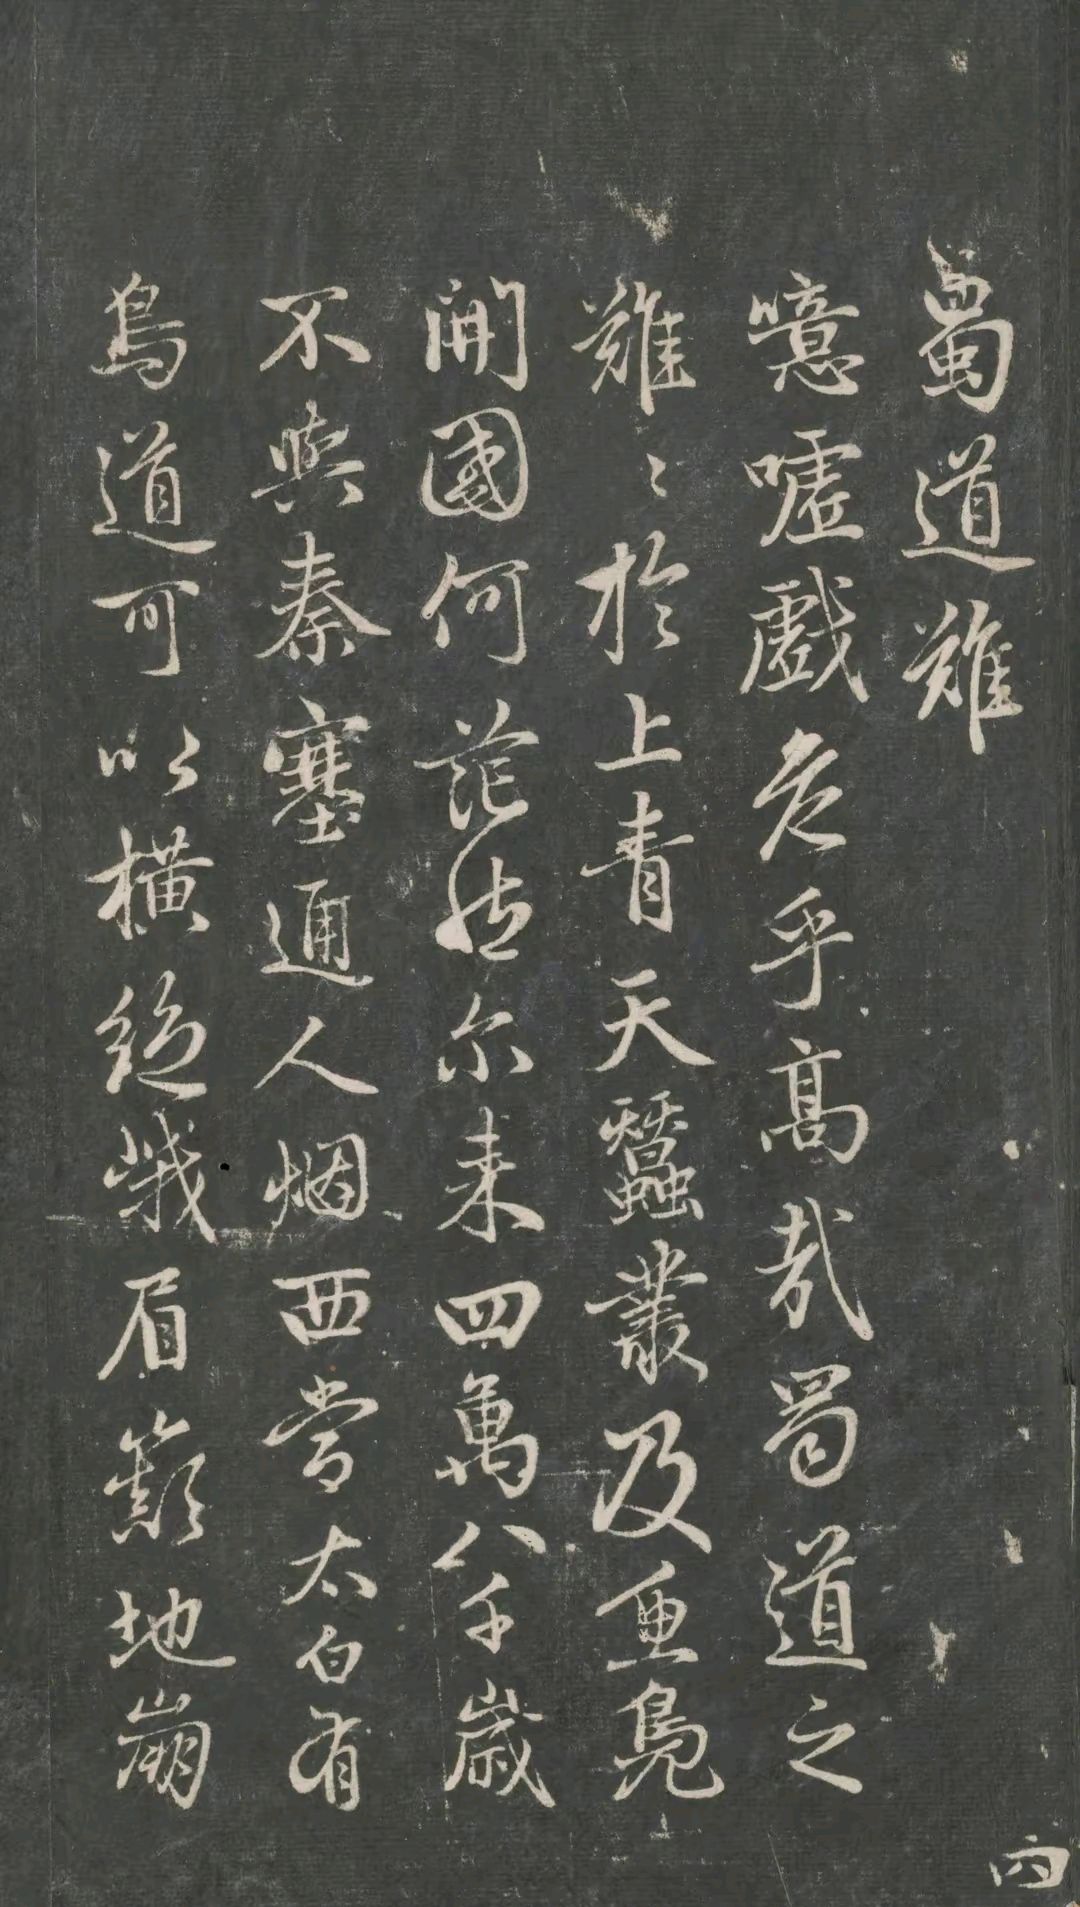 蜀道難
噫嘘戲危乎高哉蜀道之
難〻於上青天蠶叢及魚鳧
開國何茫然尔来四萬八千歲
不與秦塞通人烟西當太白有
鳥道可以橫絕峨眉巔地崩
四